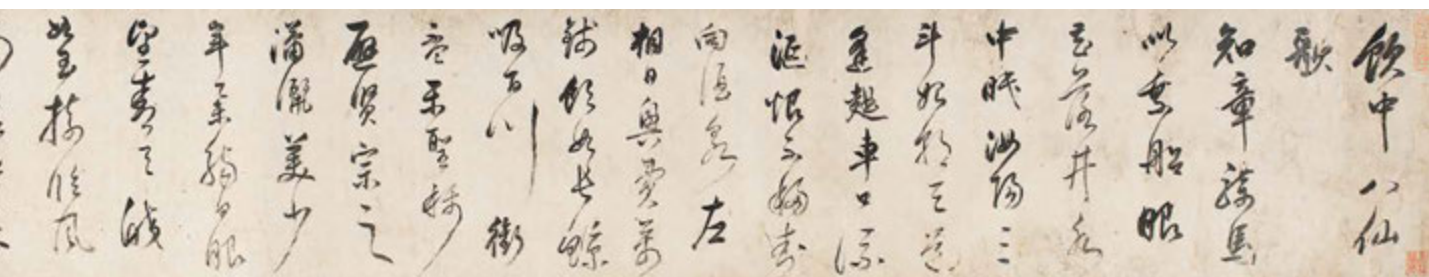 飲中八仙
歌
知章騎馬
似乘船眼
花落井水
中眠汝陽三
斗始朝天道
逢麴車口流
涎恨不移封
向酒泉左
相日興費萬
錢飲如長鯨
吸百川銜
盃樂聖稱
避賢宗之
瀟灑美少
年舉觴白眼
望青天皎
如玉樹臨風